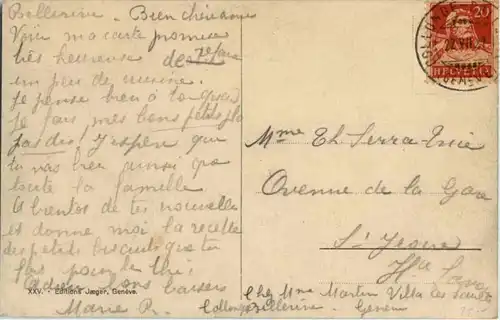 Bellerive - Bien chère amie
Voici ma carte promise
très heureuse de refaire
un peu de cuisine.
Je pense bien à toi quand
Je fais mes bons petits plats
J'espère que
tu vas bien ainsi que
toute la famille
A bientôt de tes nouvelles
et donne moi la recette
des petits biscuits que tu
fais pour le thé!
Adieu bons baisers
Marie R.
XXV. - Editions Jaeger, Genève.
20
HELVETIA
Mme Th. Serra
Avenue de la Gare
St
Hte Savoie
Chez Mme Martin Villa
Collonge Bellerive - Genève